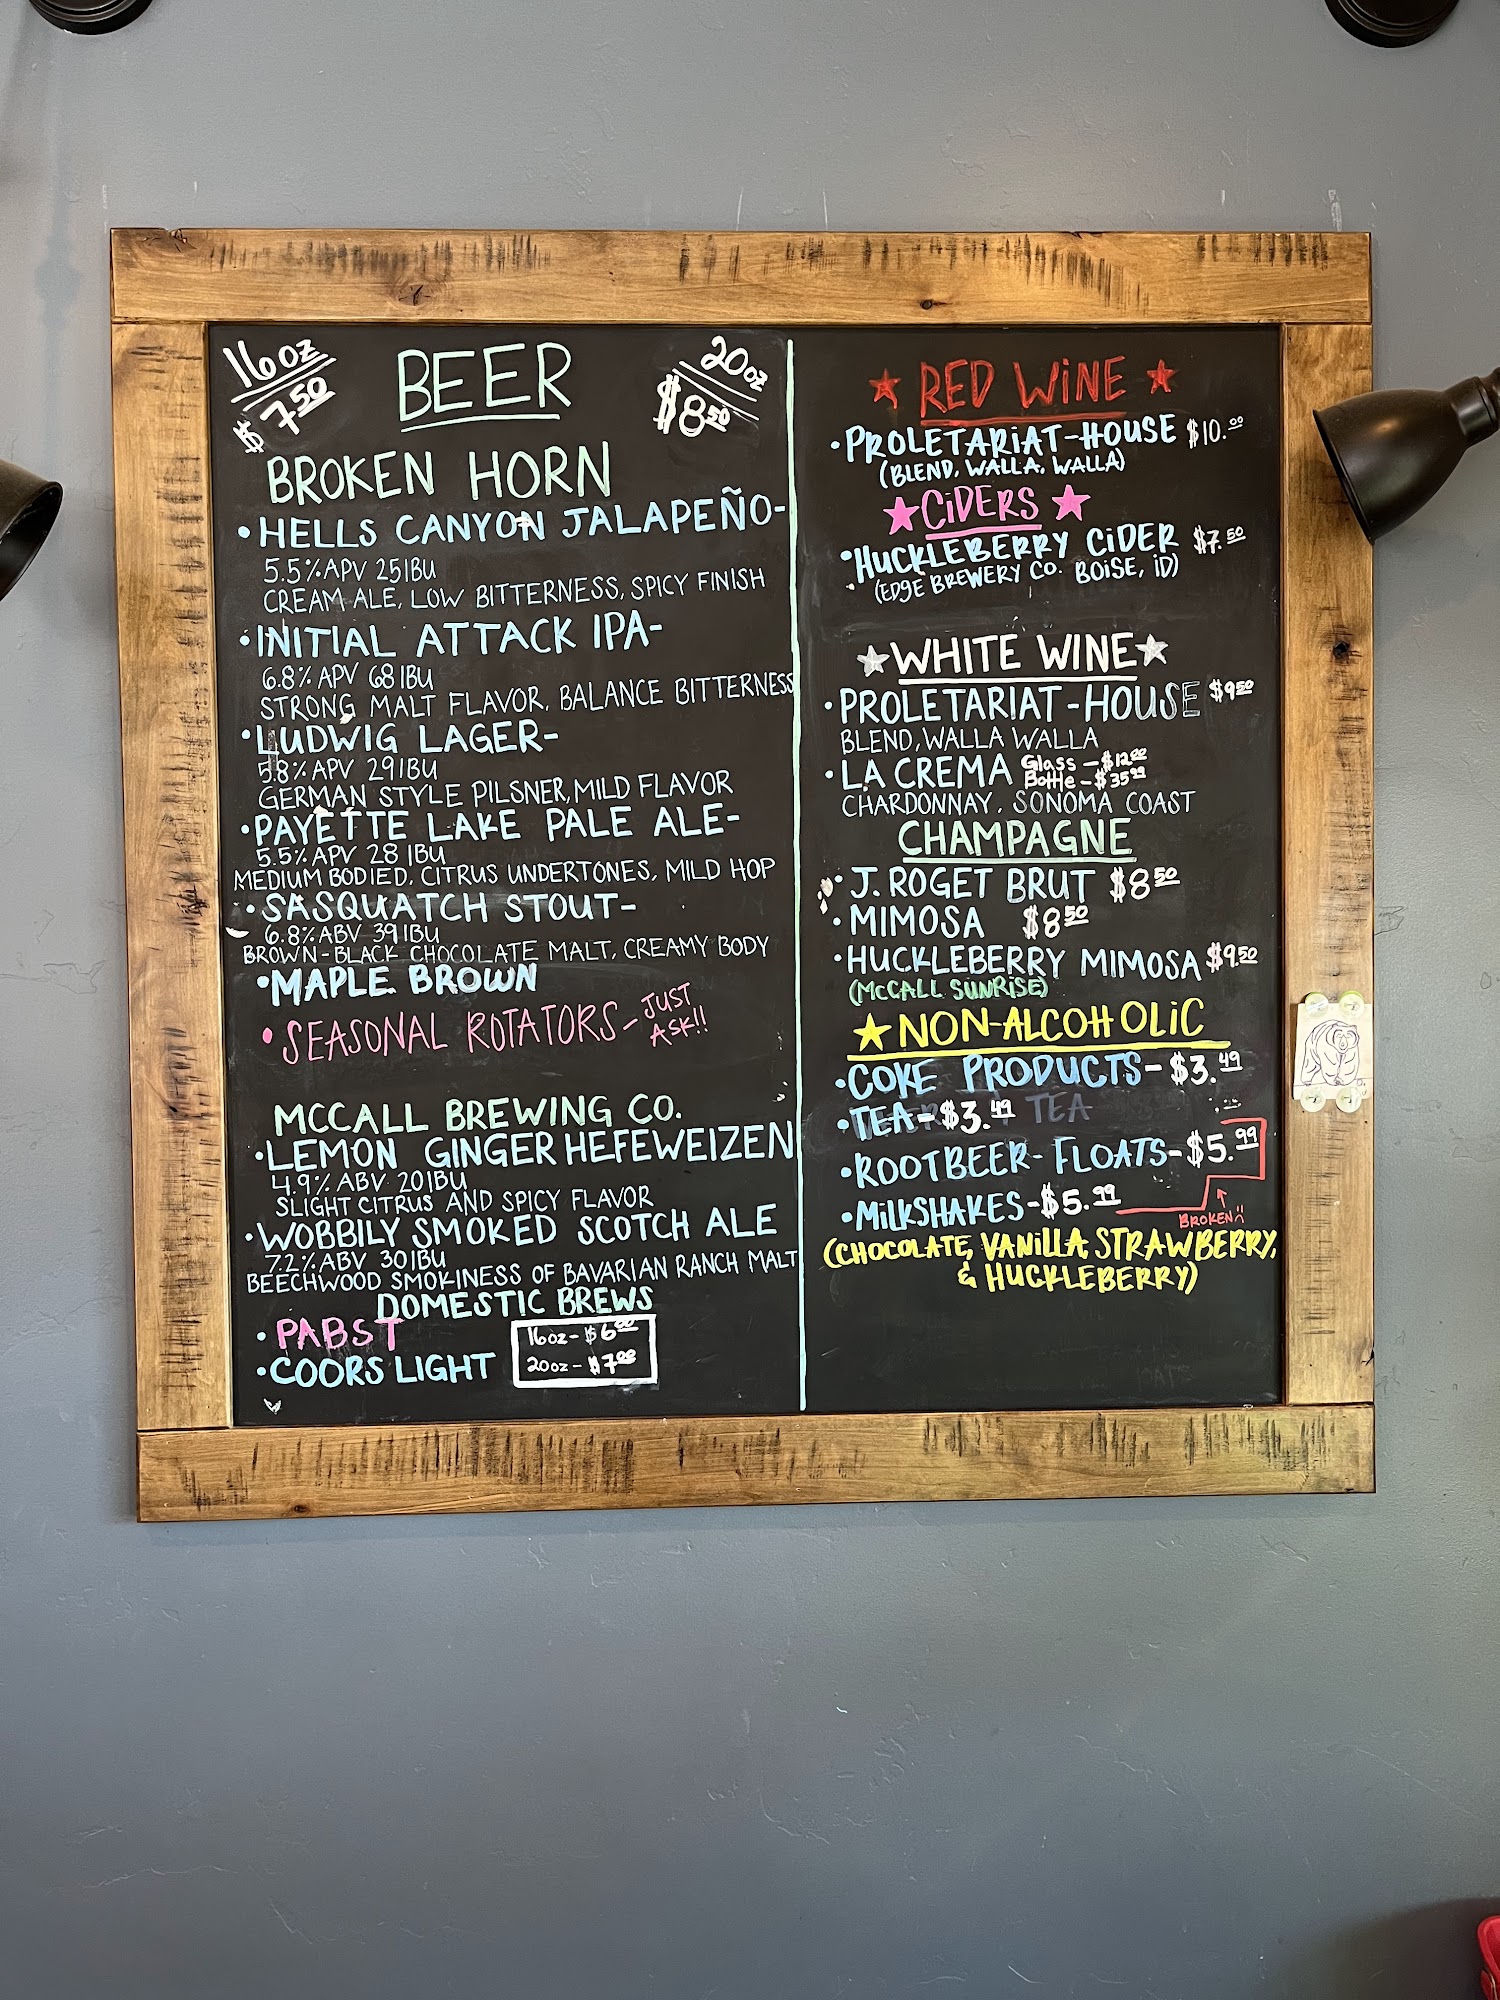 16oz
$7.50
BEER
20oz
$8.50
BROKEN HORN
•HELLS CANYON JALAPEÑO-
5.5% APV 25 IBU
CREAM ALE, LOW BITTERNESS, SPICY FINISH
•INITIAL ATTACK IPA-
6.8% APV 68 IBU
STRONG MALT FLAVOR, BALANCE BITTERNESS
•LUDWIG LAGER-
5.8% APV 29 IBU
GERMAN STYLE PILSNER, MILD FLAVOR
•PAYETTE LAKE PALE ALE-
5.5% APV 28 IBU
MEDIUM BODIED, CITRUS UNDERTONES, MILD HOP
•SASQUATCH STOUT-
6.8% ABV 39 IBU
BROWN-BLACK CHOCOLATE MALT, CREAMY BODY
•MAPLE BROWN
•SEASONAL ROTATORS-JUST ASK!!
MCCALL BREWING CO.
•LEMON GINGER HEFEWEIZEN
4.9% ABV 20 IBU
SLIGHT CITRUS AND SPICY FLAVOR
•WOBBILY SMOKED SCOTCH ALE
7.2% ABV 30 IBU
BEECHWOOD SMOKINESS OF BAVARIAN RANCH MALT
DOMESTIC BREWS
•PABST
•COORS LIGHT
16oz-$6.00
20oz-$7.00
RED WINE
•PROLETARIAT-HOUSE $10.00
(BLEND, WALLA, WALLA)
CIDERS
•HUCKLEBERRY CIDER $7.50
(EDGE BREWERY CO. BOISE, ID)
WHITE WINE
•PROLETARIAT-HOUSE $9.50
BLEND, WALLA WALLA
•LA CREMA Glass-$12.00
Bottle-$35.99
CHARDONNAY, SONOMA COAST
CHAMPAGNE
•J. ROGET BRUT $8.50
•MIMOSA $8.50
•HUCKLEBERRY MIMOSA $9.50
(McCALL SUNRISE)
NON-ALCOHOLIC
•COKE PRODUCTS-$3.49
•TEA-$3.49 TEA
•ROOTBEER-FLOATS-$5.99
•MILKSHAKES-$5.99
BROKEN :(
(CHOCOLATE, VANILLA, STRAWBERRY,
& HUCKLEBERRY)